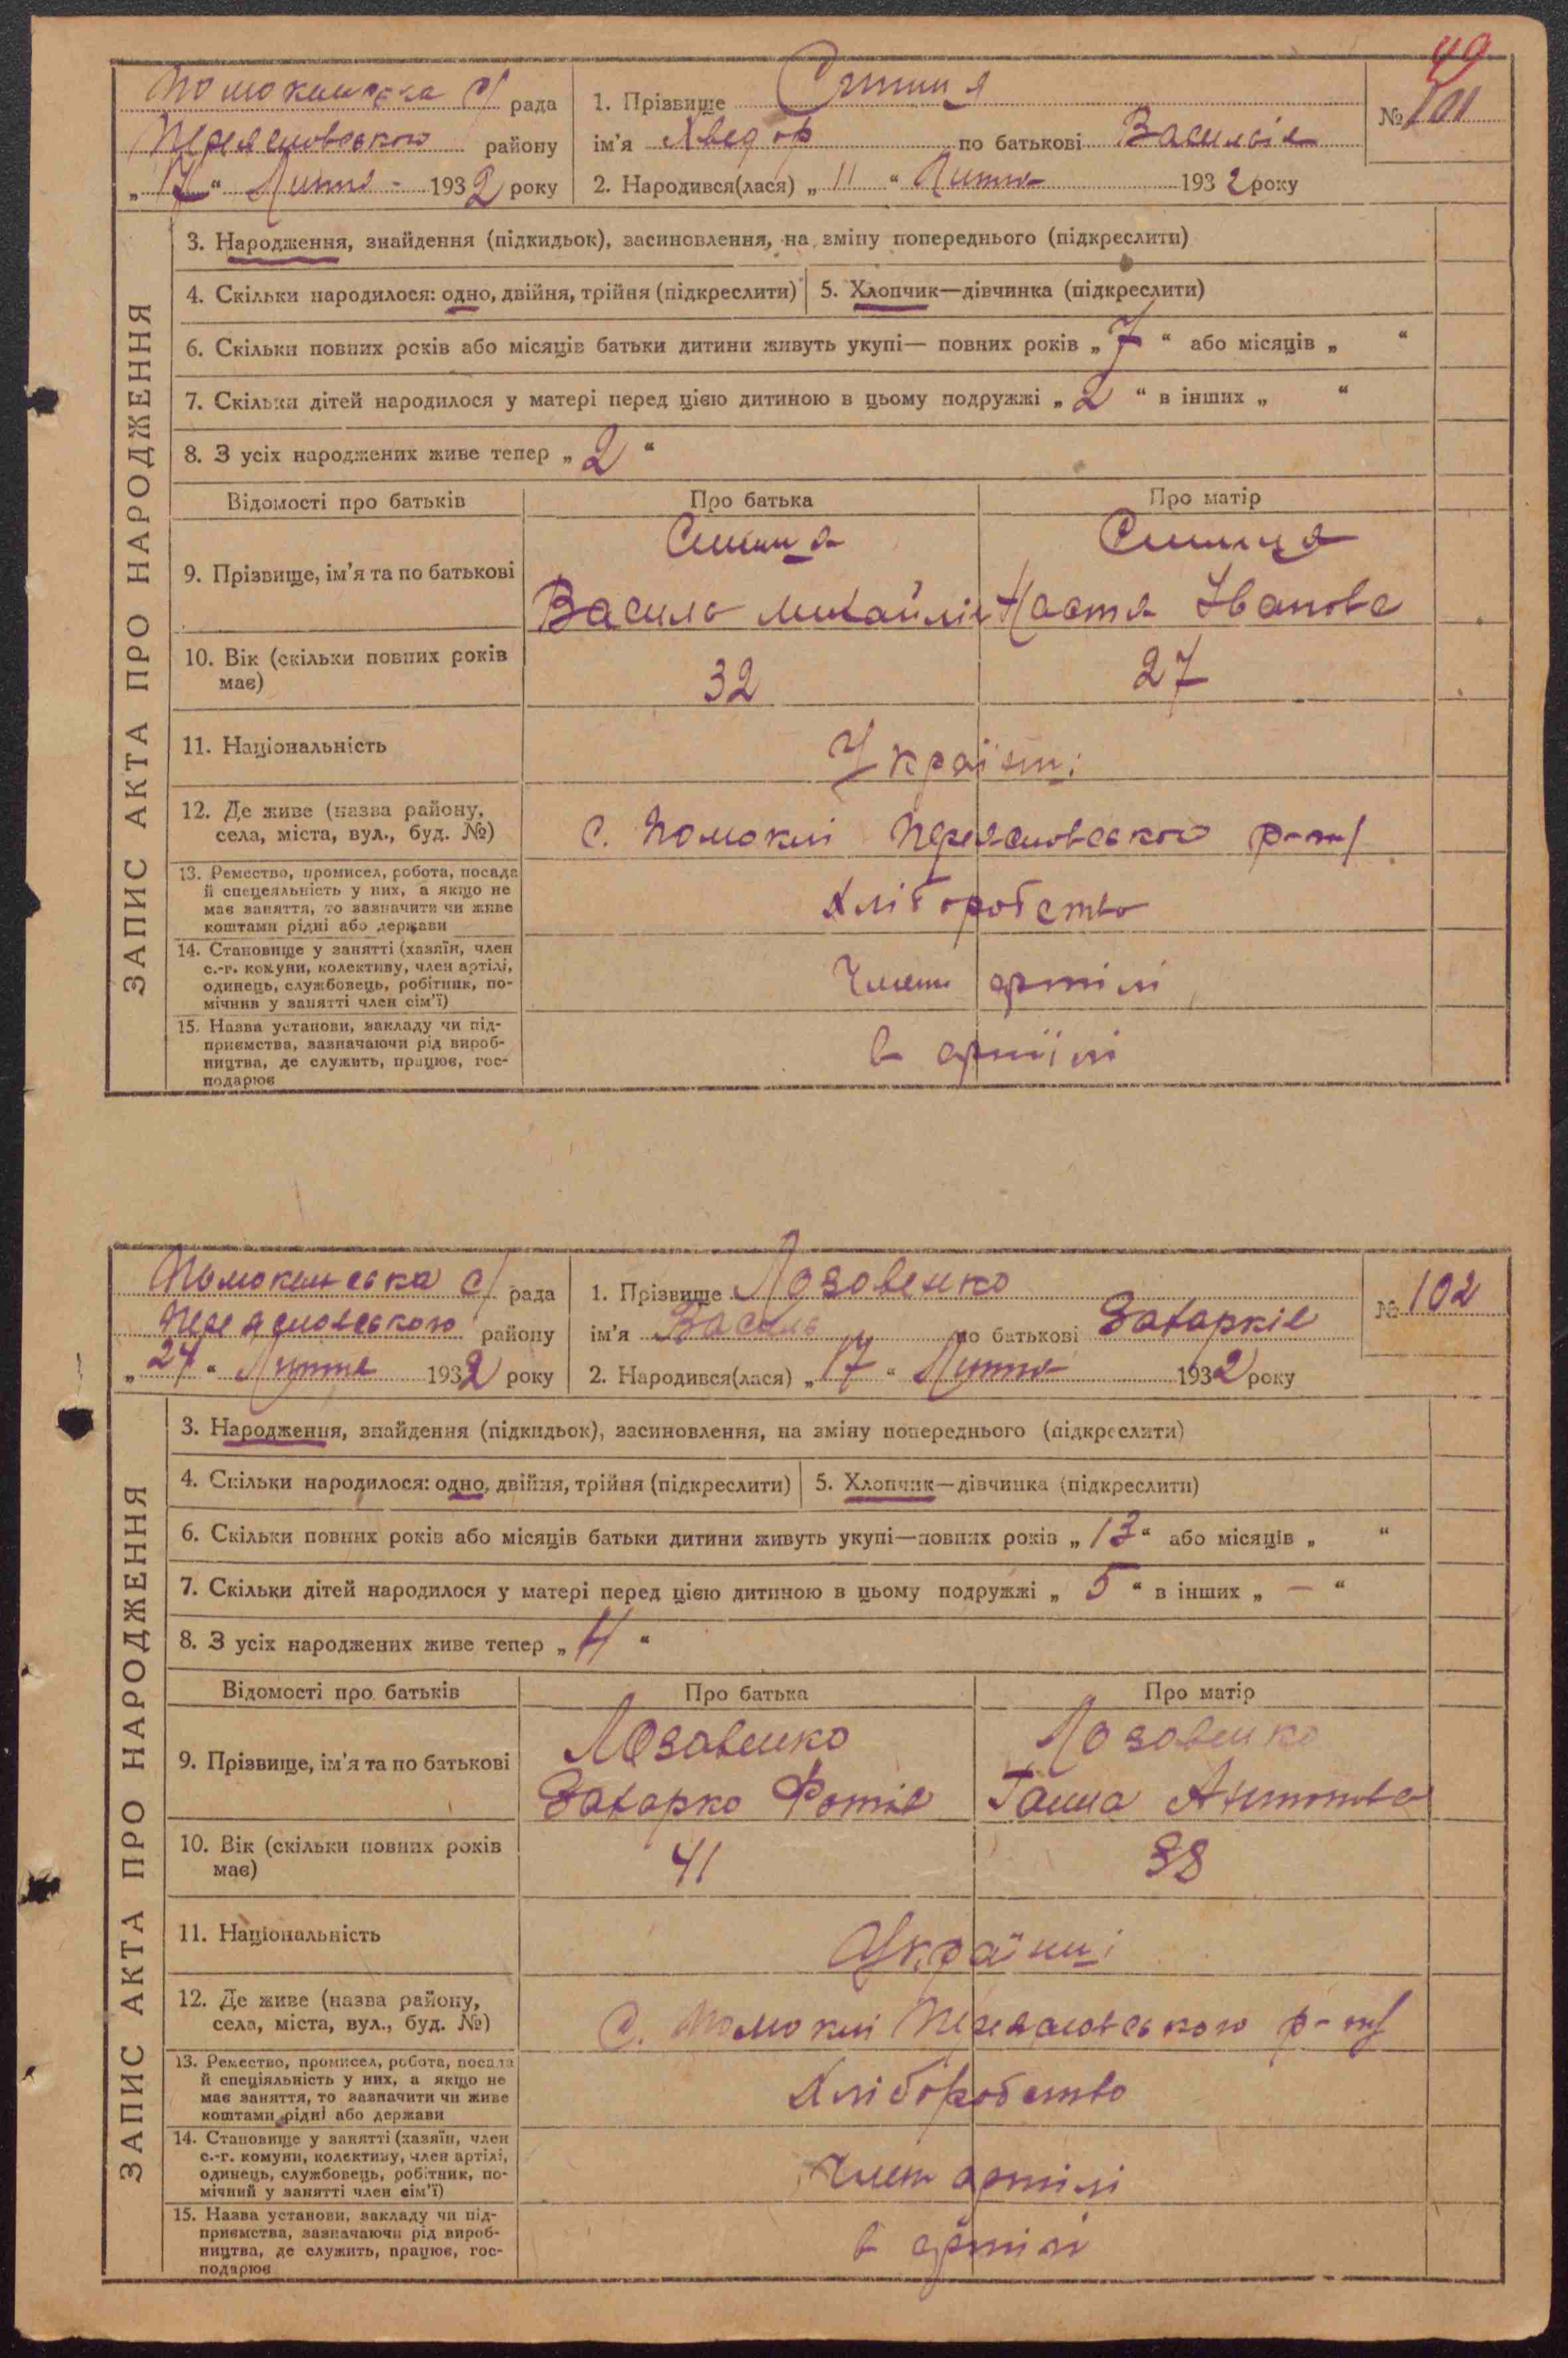 49
Помоклиська с/ рада
Переяславського району
„17“ Липня - 1932 року
1. Прізвище Синиця
ім'я Хведор по батькові Васильів
2. Народився(лася) „11“ Липня 1932 року
№ 101
ЗАПИС АКТА ПРО НАРОДЖЕННЯ
3. Народження, знайдення (підкидьок), засиновлення, на зміну попереднього (підкреслити)
4. Скільки народилося: одно, двійня, трійня (підкреслити) 5. Хлопчик—дівчинка (підкреслити)
6. Скільки повних років або місяців батьки дитини живуть укупі— повних років „7“ або місяців „ “
7. Скільки дітей народилося у матері перед цією дитиною в цьому подружжі „2“ в інших „ “
8. З усіх народжених живе тепер „2“
Відомості про батьків Про батька Про матір
9. Прізвище, ім'я та по батькові
Синиця Синиця
Василь Михайлів Настя Іванова
10. Вік (скільки повних років
має)
32 27
11. Національність
Українці
12. Де живе (назва району,
села, міста, вул., буд. №)
с. Помоклі Переяславського р-ну
13. Ремество, промисел, робота, посада
й спеціяльність у них, а якщо не
має заняття, то зазначити чи живе
коштами рідні або держави
Хліборобство
14. Становище у занятті (хазяїн, член
с.-г. комуни, колективу, член артілі,
одинець, службовець, робітник, по-
мічник у занятті член сім'ї)
Член артілі
15. Назва установи, закладу чи під-
приємства, зазначаючи рід вироб-
ництва, де служить, працює, гос-
подарює
в артілі
Помоклиська с/ рада
Переяславського району
„24“ Липня 1932 року
1. Прізвище Лозовенко
ім'я Василь по батькові Захарків
2. Народився(лася) „17“ Липня 1932 року
№ 102
ЗАПИС АКТА ПРО НАРОДЖЕННЯ
3. Народження, знайдення (підкидьок), засиновлення, на зміну попереднього (підкреслити)
4. Скільки народилося: одно, двійня, трійня (підкреслити) 5. Хлопчик—дівчинка (підкреслити)
6. Скільки повних років або місяців батьки дитини живуть укупі—повних років „13“ або місяців „ “
7. Скільки дітей народилося у матері перед цією дитиною в цьому подружжі „5“ в інших „—“
8. З усіх народжених живе тепер „4“
Відомості про батьків Про батька Про матір
9. Прізвище, ім'я та по батькові
Лозовенко Лозовенко
Захарко Фотів Ганна Антонова
10. Вік (скільки повних років
має)
41 38
11. Національність
Українці
12. Де живе (назва району,
села, міста, вул., буд. №)
с. Помоклі Переяславського р-ну
13. Ремество, промисел, робота, посада
й спеціяльність у них, а якщо не
має заняття, то зазначити чи живе
коштами рідні або держави
Хліборобство
14. Становище у занятті (хазяїн, член
с.-г. комуни, колективу, член артілі,
одинець, службовець, робітник, по-
мічний у занятті член сім'ї)
Член артілі
15. Назва установи, закладу чи під-
приємства, зазначаючи рід вироб-
ництва, де служить, працює, гос-
подарює
в артілі